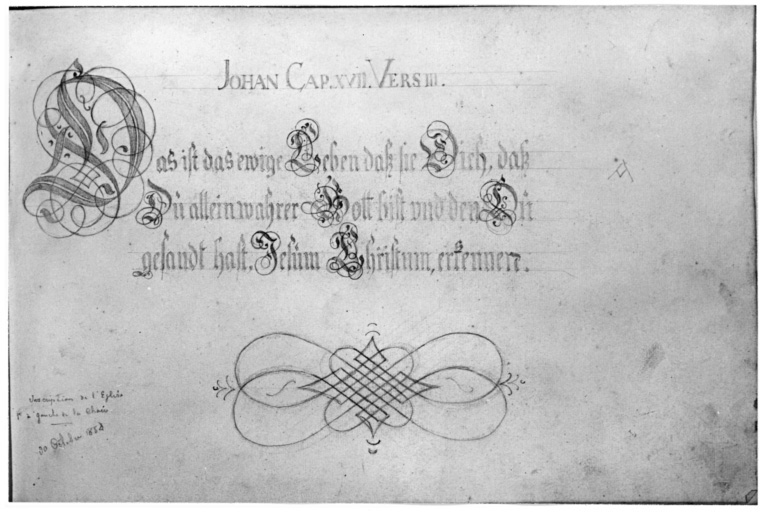 JOHAN CAP. XVII. VERS III.
Das ist das ewige Leben daß sie Dich, daß
Dü allein wahrer Gott bist vnd den Dü
gesandt hast. Jesüm Christum, erkennere.
Inscription de l'Eglise
à gauche de la Chaire
30 Octobre